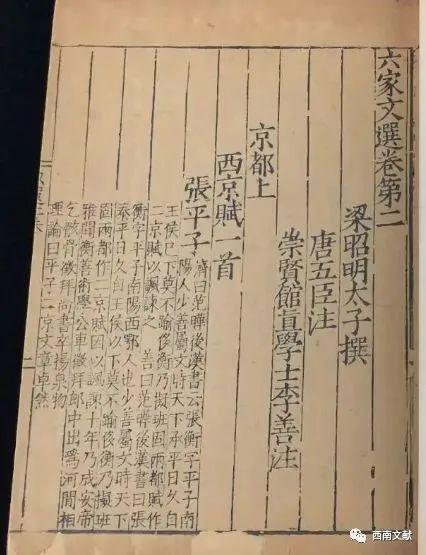 六家文選卷第二
梁昭明太子撰
唐五臣注
崇賢館直學士李善注
京都上
西京賦一首
張平子
濟曰范曄後漢書云張衡字平子南
陽人少善屬文時天下承平日久自
王侯已下莫不踰侈衡乃擬班固兩都賦作
二京賦以諷諫之 善曰范曄後漢書曰張
衡字平子南陽西鄂人也少善屬文時天下
泰平日久自王侯以下莫不踰侈衡乃擬班
固兩都作二京賦因以諷諫十年乃成安帝
雅聞衡善術學公車徵拜郎中出爲河間相
乞骸骨徵拜尚書卒楊泉物
理論曰平子二京文章卓然
二
西南文献